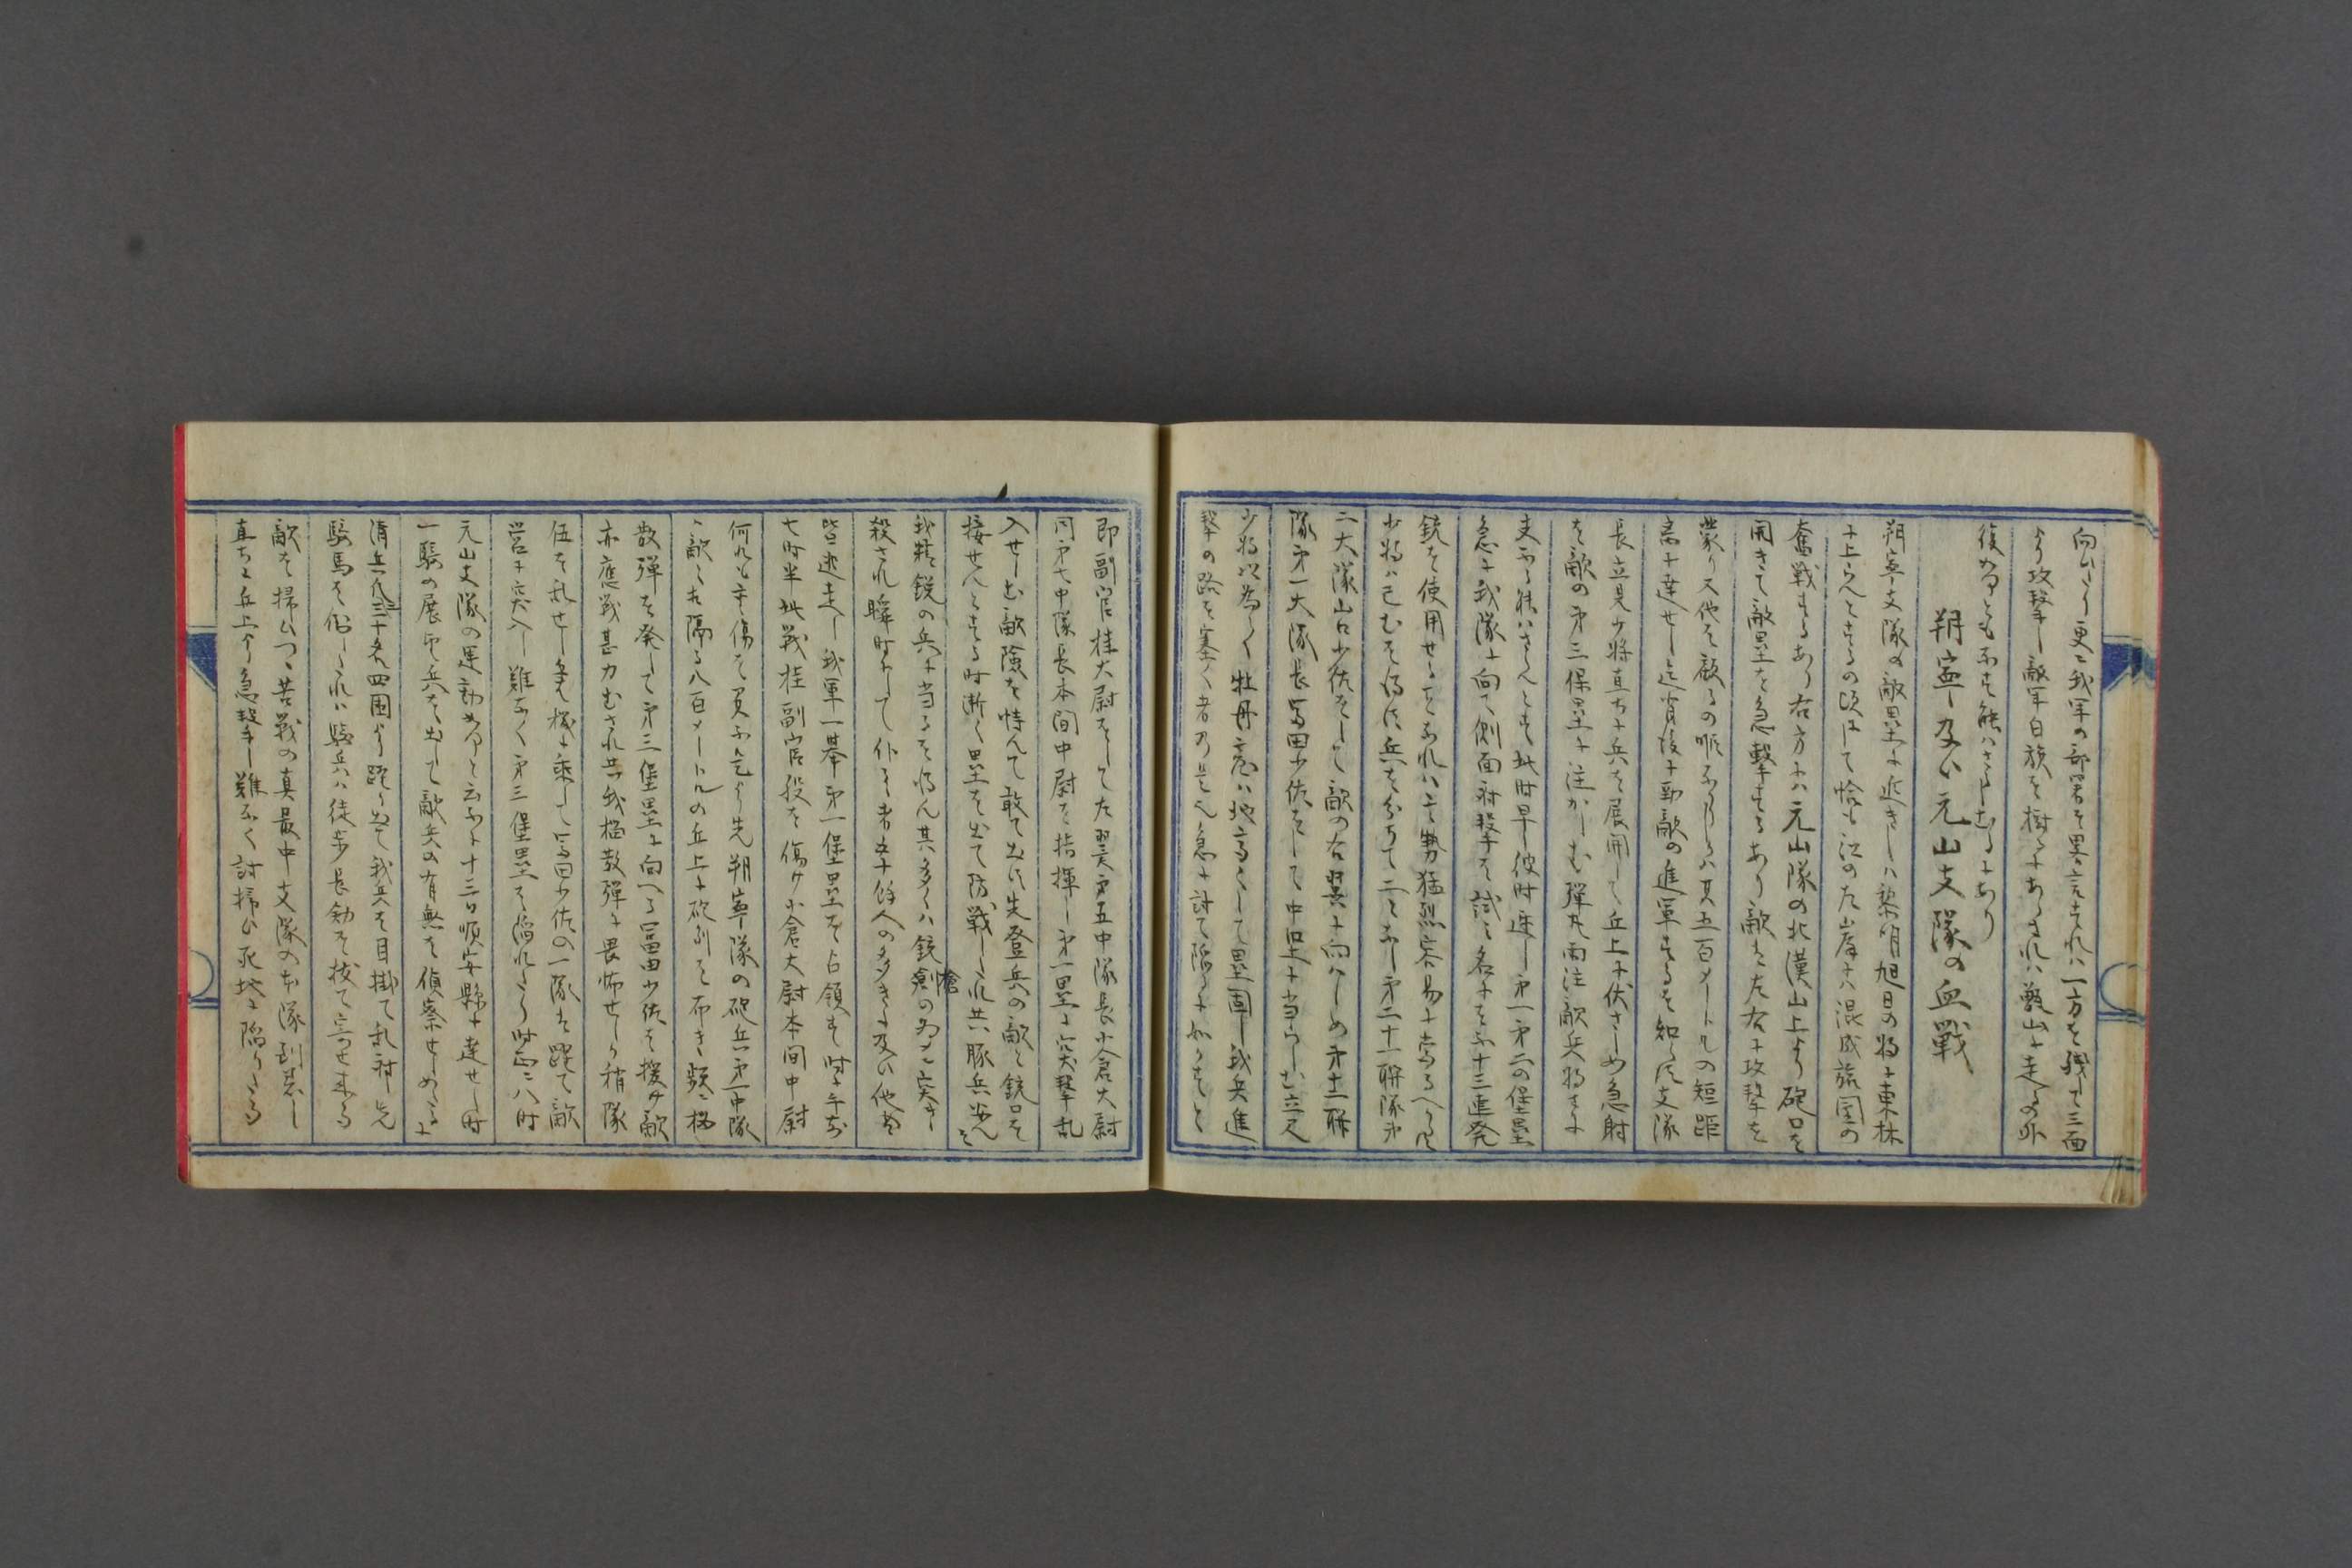 向ひたり更に我軍の部署を畧言すれハ一方を残して三面
より攻撃し敵軍白旗を樹るにあらされハ義山に走るの外
復為すこと能ハさらしむるにあり
朔寧及ひ元山支隊の血戦
朔寧支隊の敵塁に近きしハ黎明旭日の将に東林
に上らんとするの頃にて恰も江の左岸にハ混成旅団の
奮戦するあり右方にハ元山隊の北漢山上より砲口を
開きて敵塁を急撃するあり敵ハ左右に攻撃を
蒙り又他を顧るの暇なけれハ其五百メートルの短距
离に達せし迄背後に勁敵の進軍するを知らす支隊
長立見少将直ちに兵を展開して丘上に伏さしめ急射
を敵の第三保塁に注かしむ弾丸雨注敵兵将さに
支ふる能ハさらんとす此時早し彼時遅し第一第二の堡塁
急に我隊に向て側面射撃を試ミ名に負ふ十三連発
銃を使用せしことなれハ其勢猛烈容易に当るへからす
少将ハ已むを得す兵を分ちて二となし第二十一聯隊第
二大隊山口少佐をして敵の右翼に向ハしめ第十二聯
隊第一大隊長富田少佐をして中堅に当らしむ立見
少将以為らく牡丹台ハ地高くして塁固し我兵進
撃の路を塞く者乃是也急に討て陥るに如かすと
即副官桂大尉をして左翼第五中隊長小倉大尉
同第七中隊長本間中尉を指揮し第一塁に突撃乱
入せしむ敵険を恃んて敢て出す先登兵の敵と銃口を
接せんとする時漸く塁を出て防戦したれ共豚兵安んそ
我精鋭の兵に当るを得ん其多くハ銃鎗の為に突き
殺され瞬時にして仆るゝ者五十餘人の多きに及ひ他ハ
皆逃走し我軍一挙第一堡塁を占領す時に午前
七時半此戦桂副官股を傷け小倉大尉本間中尉
何れも重傷を負ふ是より先朔寧隊の砲兵第一中隊
ハ敵と相隔る八百メートルの丘上に砲列を布き頻に榴
散弾を発して第三堡塁に向へる富田少佐を援け敵
亦應戦甚力むされ共我榴散弾に畏怖せしか稍隊
伍を乱せしを見機に乗して富田少佐の一隊ハ躍て敵
営に突入し難なく第三堡塁を陥れたり時正に八時
元山支隊の運動如何と云ふに十三日順安縣に達せし時
一騎の展望兵を出して敵兵の有無を偵察せしめたるに
清兵凡三十名四囲より躍り出て我兵を目掛て乱射し先
騎馬を倒したれハ騎兵ハ徒歩長劔を抜て寄せ来る
敵を掃ひつゝ苦戦の真最中支隊の本隊到着し
直ちに丘上より急撃し難なく討掃ひ死地に陥りたる